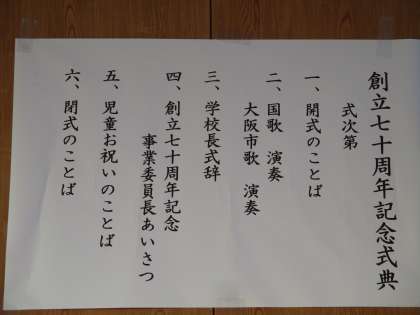 創立七十周年記念式典
式次第
一、開式のことば
二、国歌 演奏
大阪市歌 演奏
三、学校長式辞
四、創立七十周年記念
事業委員長あいさつ
五、児童お祝いのことば
六、閉式のことば